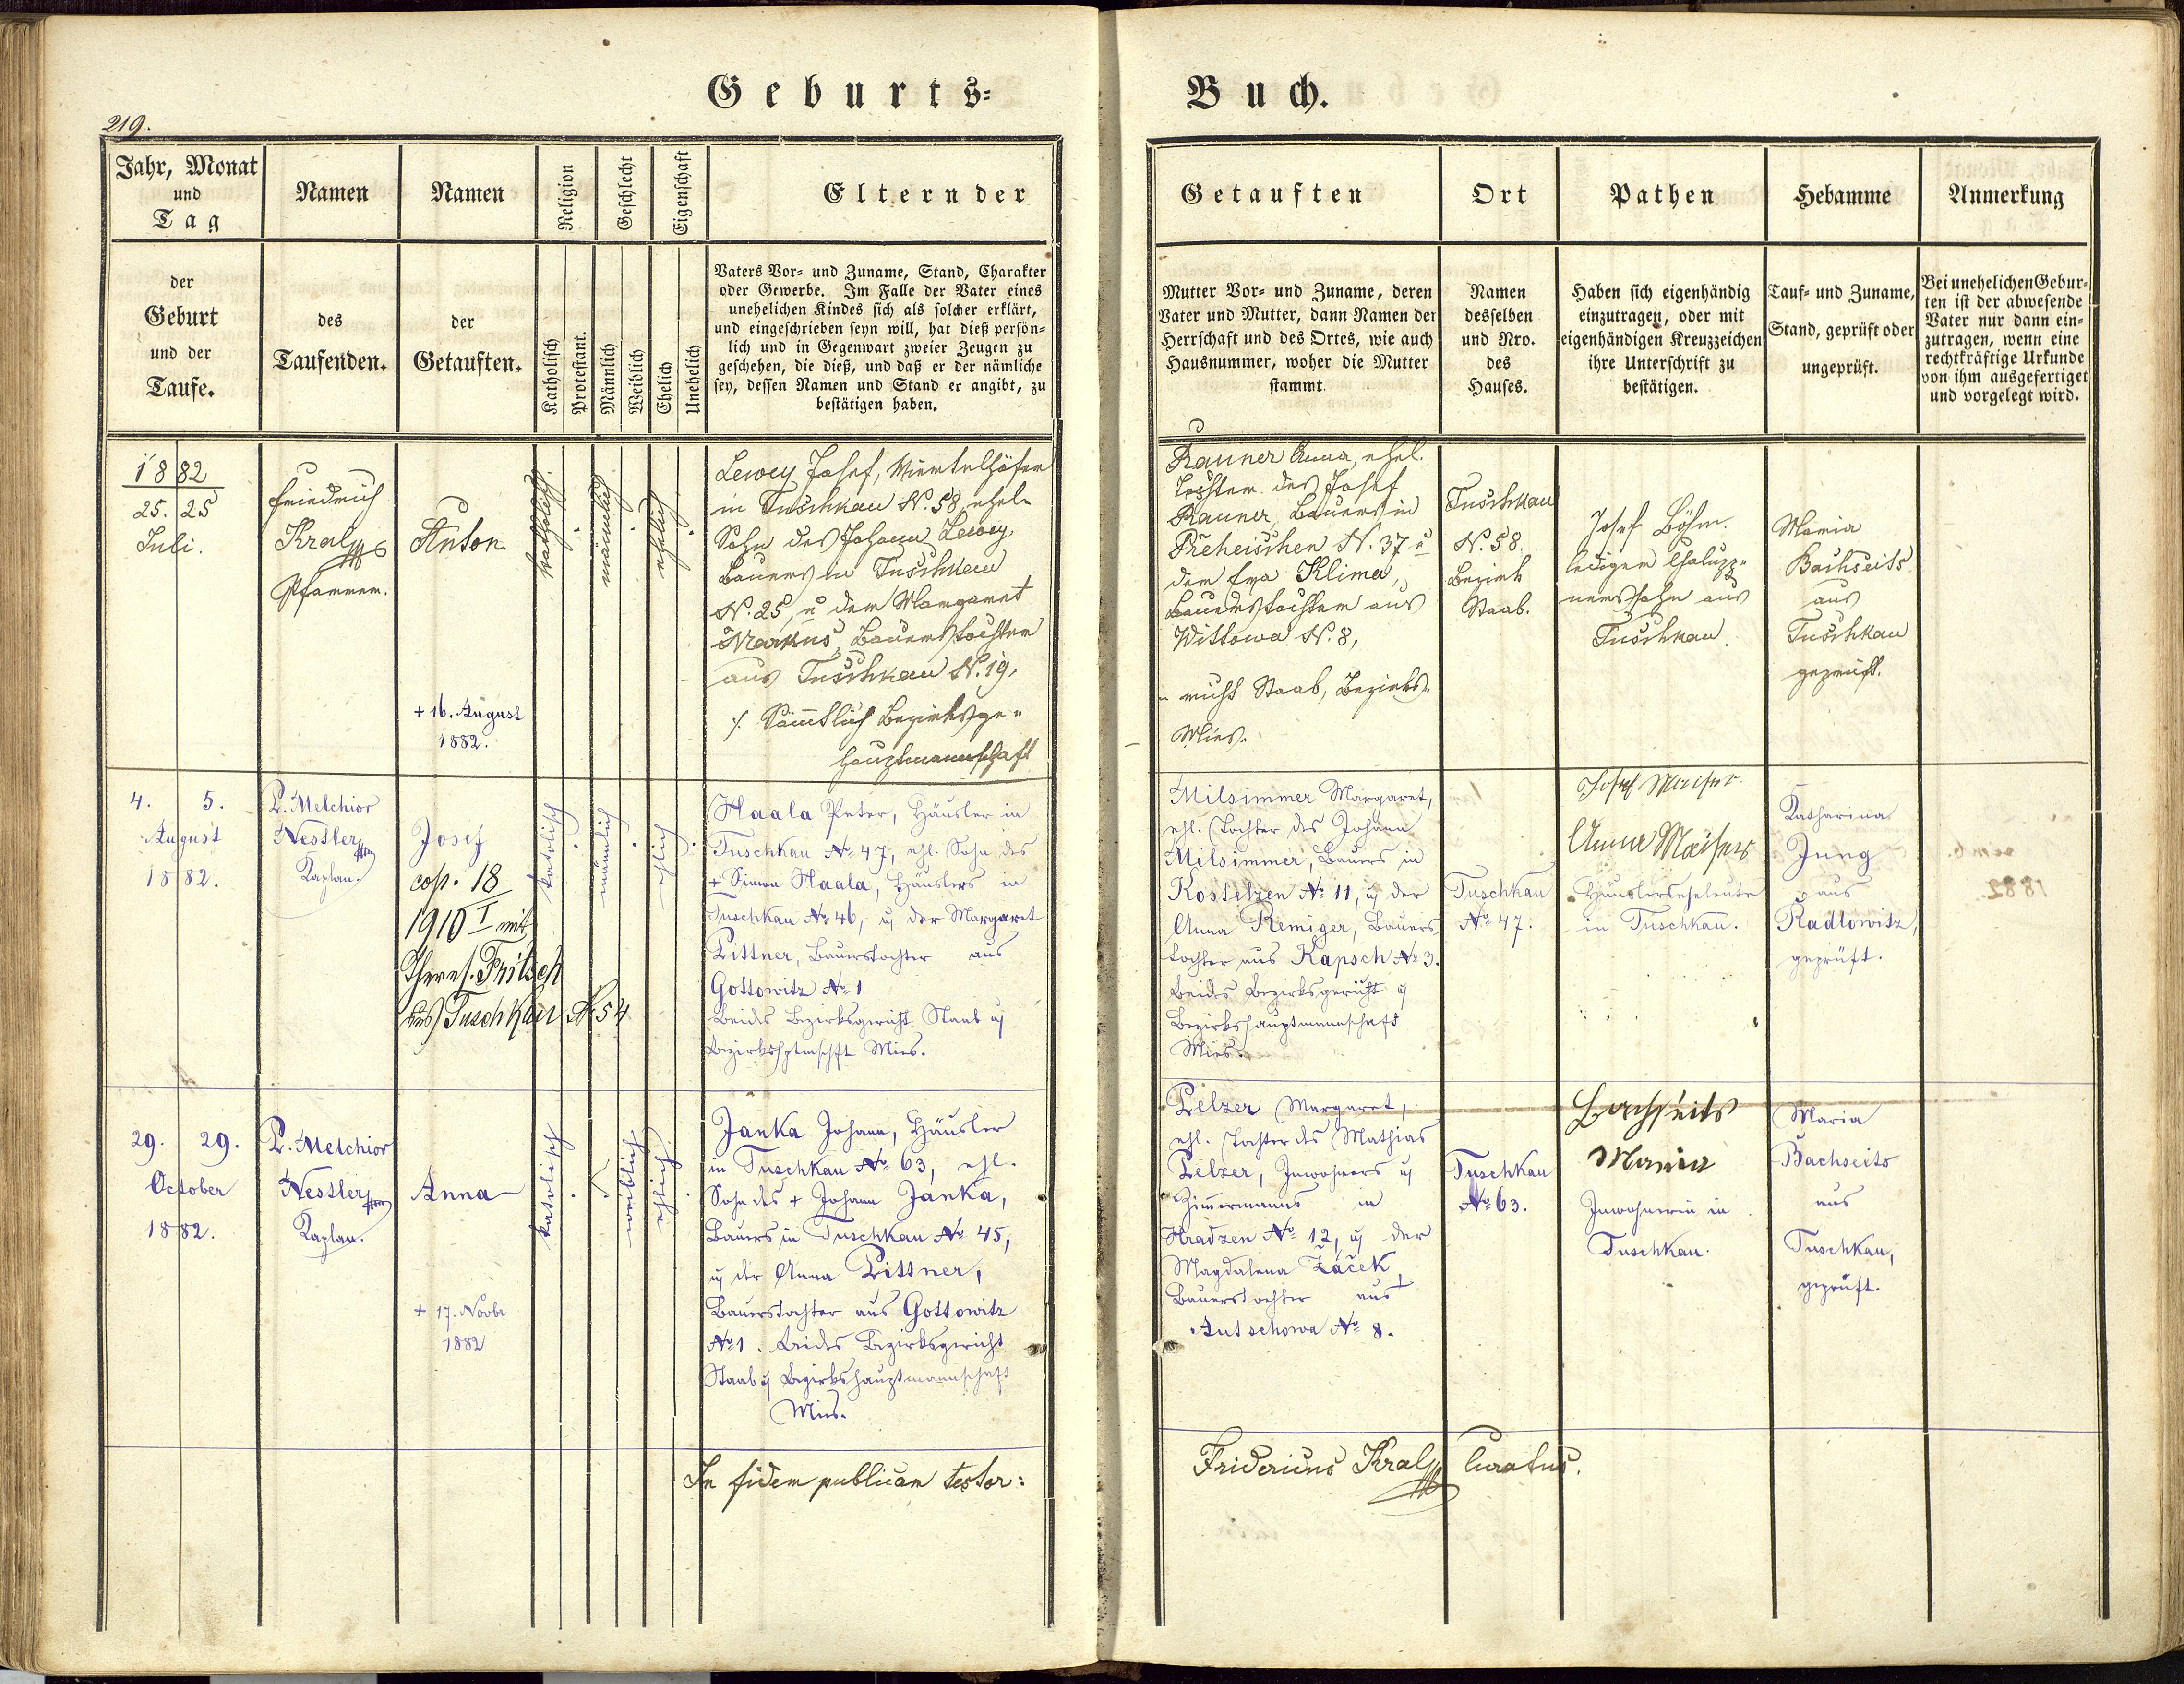 Geburts=
Buch.
219.
Jahr, Monat
und
Tag
der
Geburt
und der
Taufe.
Namen
des
Taufenden.
Namen
der
Getauften.
Religion
Katholisch
Protestant.
Geschlecht
Männlich
Weiblich
Eigenschaft
Ehelich
Unehelich
Eltern der
Vaters Vor- und Zuname, Stand, Charakter
oder Gewerbe. Im Falle der Vater eines
unehelichen Kindes sich als solcher erklärt,
und eingeschrieben seyn will, hat dieß persön-
lich und in Gegenwart zweier Zeugen zu
geschehen, die dieß, und daß er der nämliche
sey, dessen Namen und Stand er angibt, zu
bestätigen haben.
Getauften
Mutter Vor- und Zuname, deren
Vater und Mutter, dann Namen der
Herrschaft und des Ortes, wie auch
Hausnummer, woher die Mutter
stammt.
Ort
Namen
desselben
und Nro.
des
Hauses.
Pathen
Haben sich eigenhändig
einzutragen, oder mit
eigenhändigen Kreuzzeichen
ihre Unterschrift zu
bestätigen.
Hebamme
Tauf- und Zuname,
Stand, geprüft oder
ungeprüft.
Anmerkung
Bei unehelichen Gebur-
ten ist der abwesende
Vater nur dann ein-
zutragen, wenn eine
rechtkräftige Urkunde
von ihm ausgefertiget
und vorgelegt wird.
1882
25. 25
Juli.
Friedrich
Kral
Pfarrer.
Anton
+ 16. August
1882.
katholisch.
männlich
ehelich
Lewey Josef, Viertelhöfer
in Tuschkau N. 58, ehel.
Sohn des Johann Lewey,
Bauers in Tuschkau
N. 25, u der Margaret
Markus, Bauerstochter
aus Tuschkau N. 19.
% Sämtlich Bezirksge-
hauptmannschaft
Rauner Anna, ehel.
Tochter des Josef
Rauner, Bauers in
Preheischen N. 37 u
der Eva Klima,
Bauerstochter aus
Wittowa N. 8,
- richt Staab, Bezirks-
Mies.
Tuschkau
N. 58.
Bezirk
Staab.
Josef Böhm.
lediger Chalupp-
nerssohn aus
Tuschkau.
Maria
Bachseits
aus
Tuschkau
geprüft.
4. 5.
August
1882.
P. Melchior
Nestler
Kaplan.
Josef
cop. 18
1910 I mit
Theres. Fritsch
aus Tuschkau No 54
katolisch
männlich
ehlich
Haala Peter, Häusler in
Tuschkau No 47, ehl. Sohn des
+ Simon Haala, Häuslers in
Tuschkau No 46, u der Margaret
Pittner, Bauerstochter aus
Gottowitz No 1
beides Bezirksgericht Staab u
Bezirkshptmschft Mies.
Milsimmer Margaret,
ehl. Tochter des Johann
Milsimmer, Bauers in
Kostelzen No 11, u der
Anna Remiger, Bauers
tochter aus Kapsch No 3.
beides Bezirksgericht u
Bezirkshauptmannschaft
Mies.
Tuschkau
No 47.
Josef Maiser.
Anna Maiser
Häuslerseheleute
in Tuschkau.
Katharina
Jung
aus
Radlowitz,
geprüft.
29. 29.
October
1882.
P. Melchior
Nestler
Kaplan.
Anna
+ 17. Novbr
1882
katolisch
weiblich
ehlich
Janka Johann, Häusler
in Tuschkau No 63, ehl.
Sohn des + Johann Janka,
Bauers in Tuschkau No 45,
u der Anna Pittner,
Bauerstochter aus Gottowitz
No 1. beides Bezirksgericht
Staab u Bezirkshauptmannschaft
Mies.
Pelzer Margaret,
ehl. Tochter des Mathias
Pelzer, Inwohners u
Zimmermanns in
Hradzen No 12, u der
Magdalena Žáček,
Bauerstochter aus
Autschowa No 8.
Tuschkau
No 63.
Bachseits
Maria
Inwohnerin in
Tuschkau.
Maria
Bachseits
aus
Tuschkau,
geprüft.
In fidem publicam testor:
Fridericus Kral Curatus.